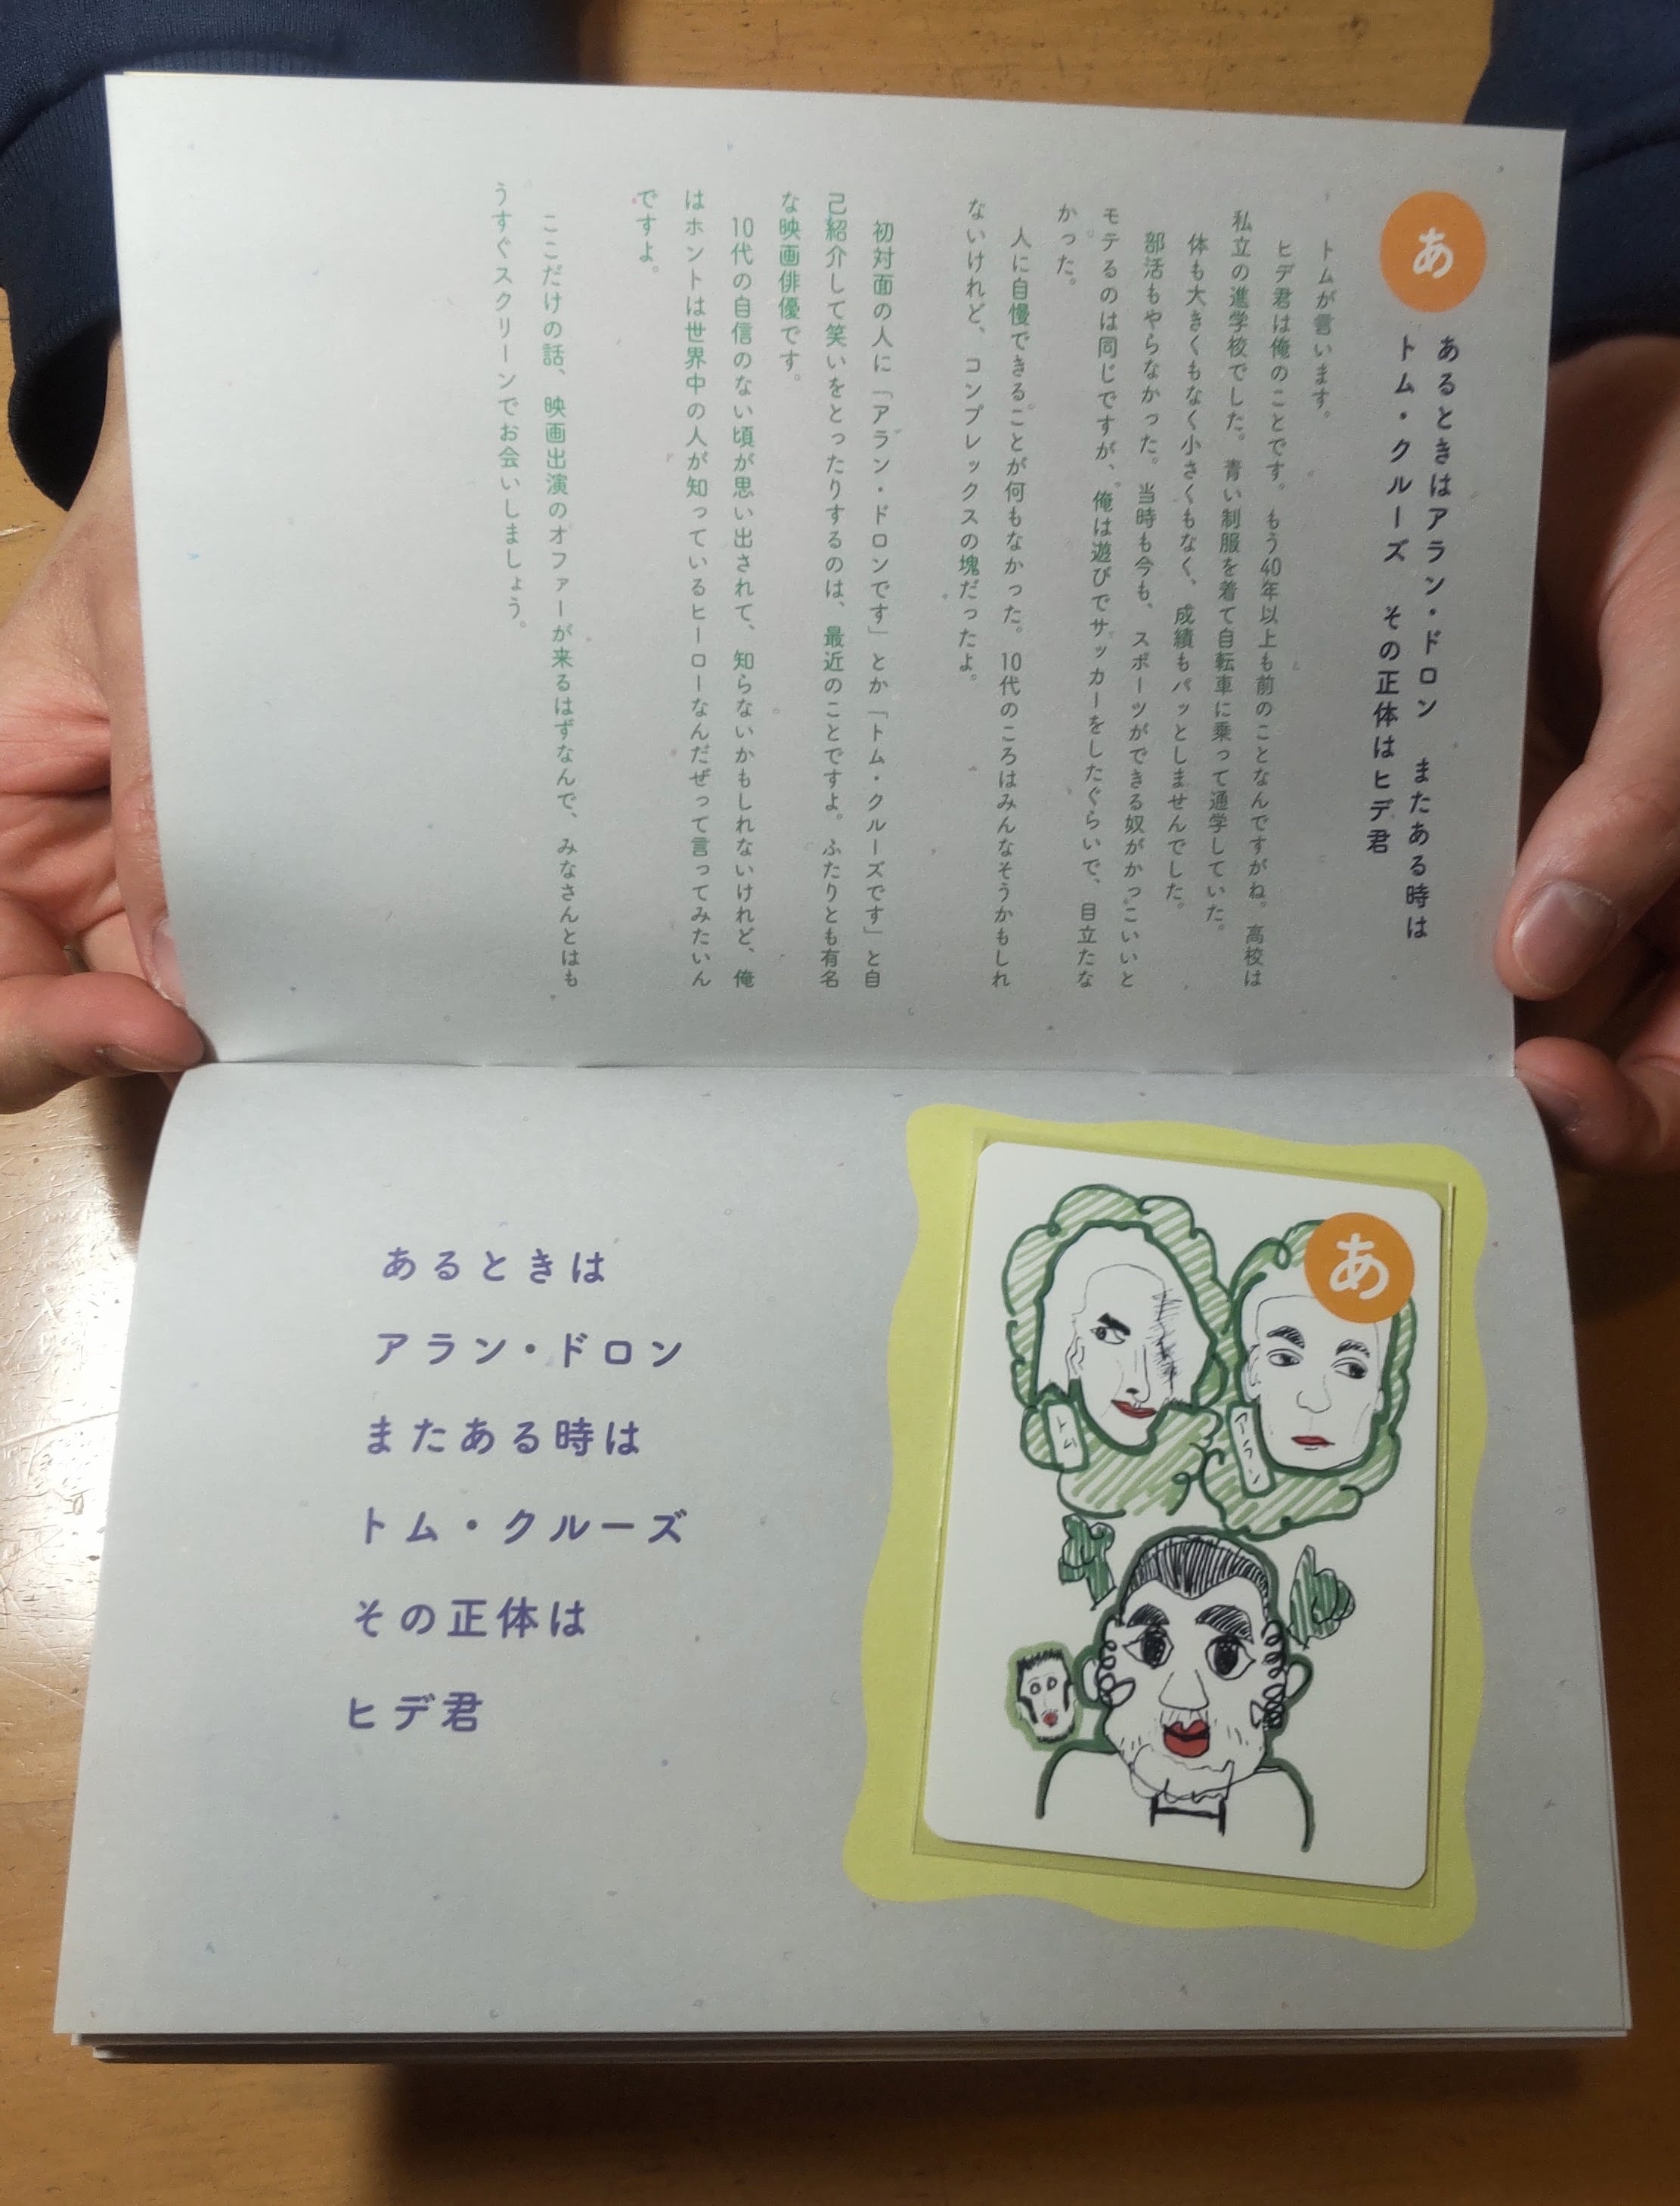 あ
あるときはアラン・ドロン　またある時は
トム・クルーズ　その正体はヒデ君
トムが言います。
ヒデ君は俺のことです。もう40年以上も前のことなんですがね。高校は
私立の進学校でした。青い制服を着て自転車に乗って通学していた。
体も大きくもなく小さくもなく、成績もパッとしませんでした。
部活もやらなかった。当時も今も、スポーツができる奴がかっこいいと
モテるのは同じですが、俺は遊びでサッカーをしたぐらいで、目立たな
かった。
人に自慢できることが何もなかった。10代のころはみんなそうかもしれ
ないけれど、コンプレックスの塊だったよ。
初対面の人に「アラン・ドロンです」とか「トム・クルーズです」と自
己紹介して笑いをとったりするのは、最近のことですよ。ふたりとも有名
な映画俳優です。
10代の自信のない頃が思い出されて、知らないかもしれないけれど、俺
はホントは世界中の人が知っているヒーローなんだぜって言ってみたいん
ですよ。
ここだけの話、映画出演のオファーが来るはずなんで、みなさんとはも
うすぐスクリーンでお会いしましょう。
あるときは
アラン・ドロン
またある時は
トム・クルーズ
その正体は
ヒデ君
あ
アラン
トム